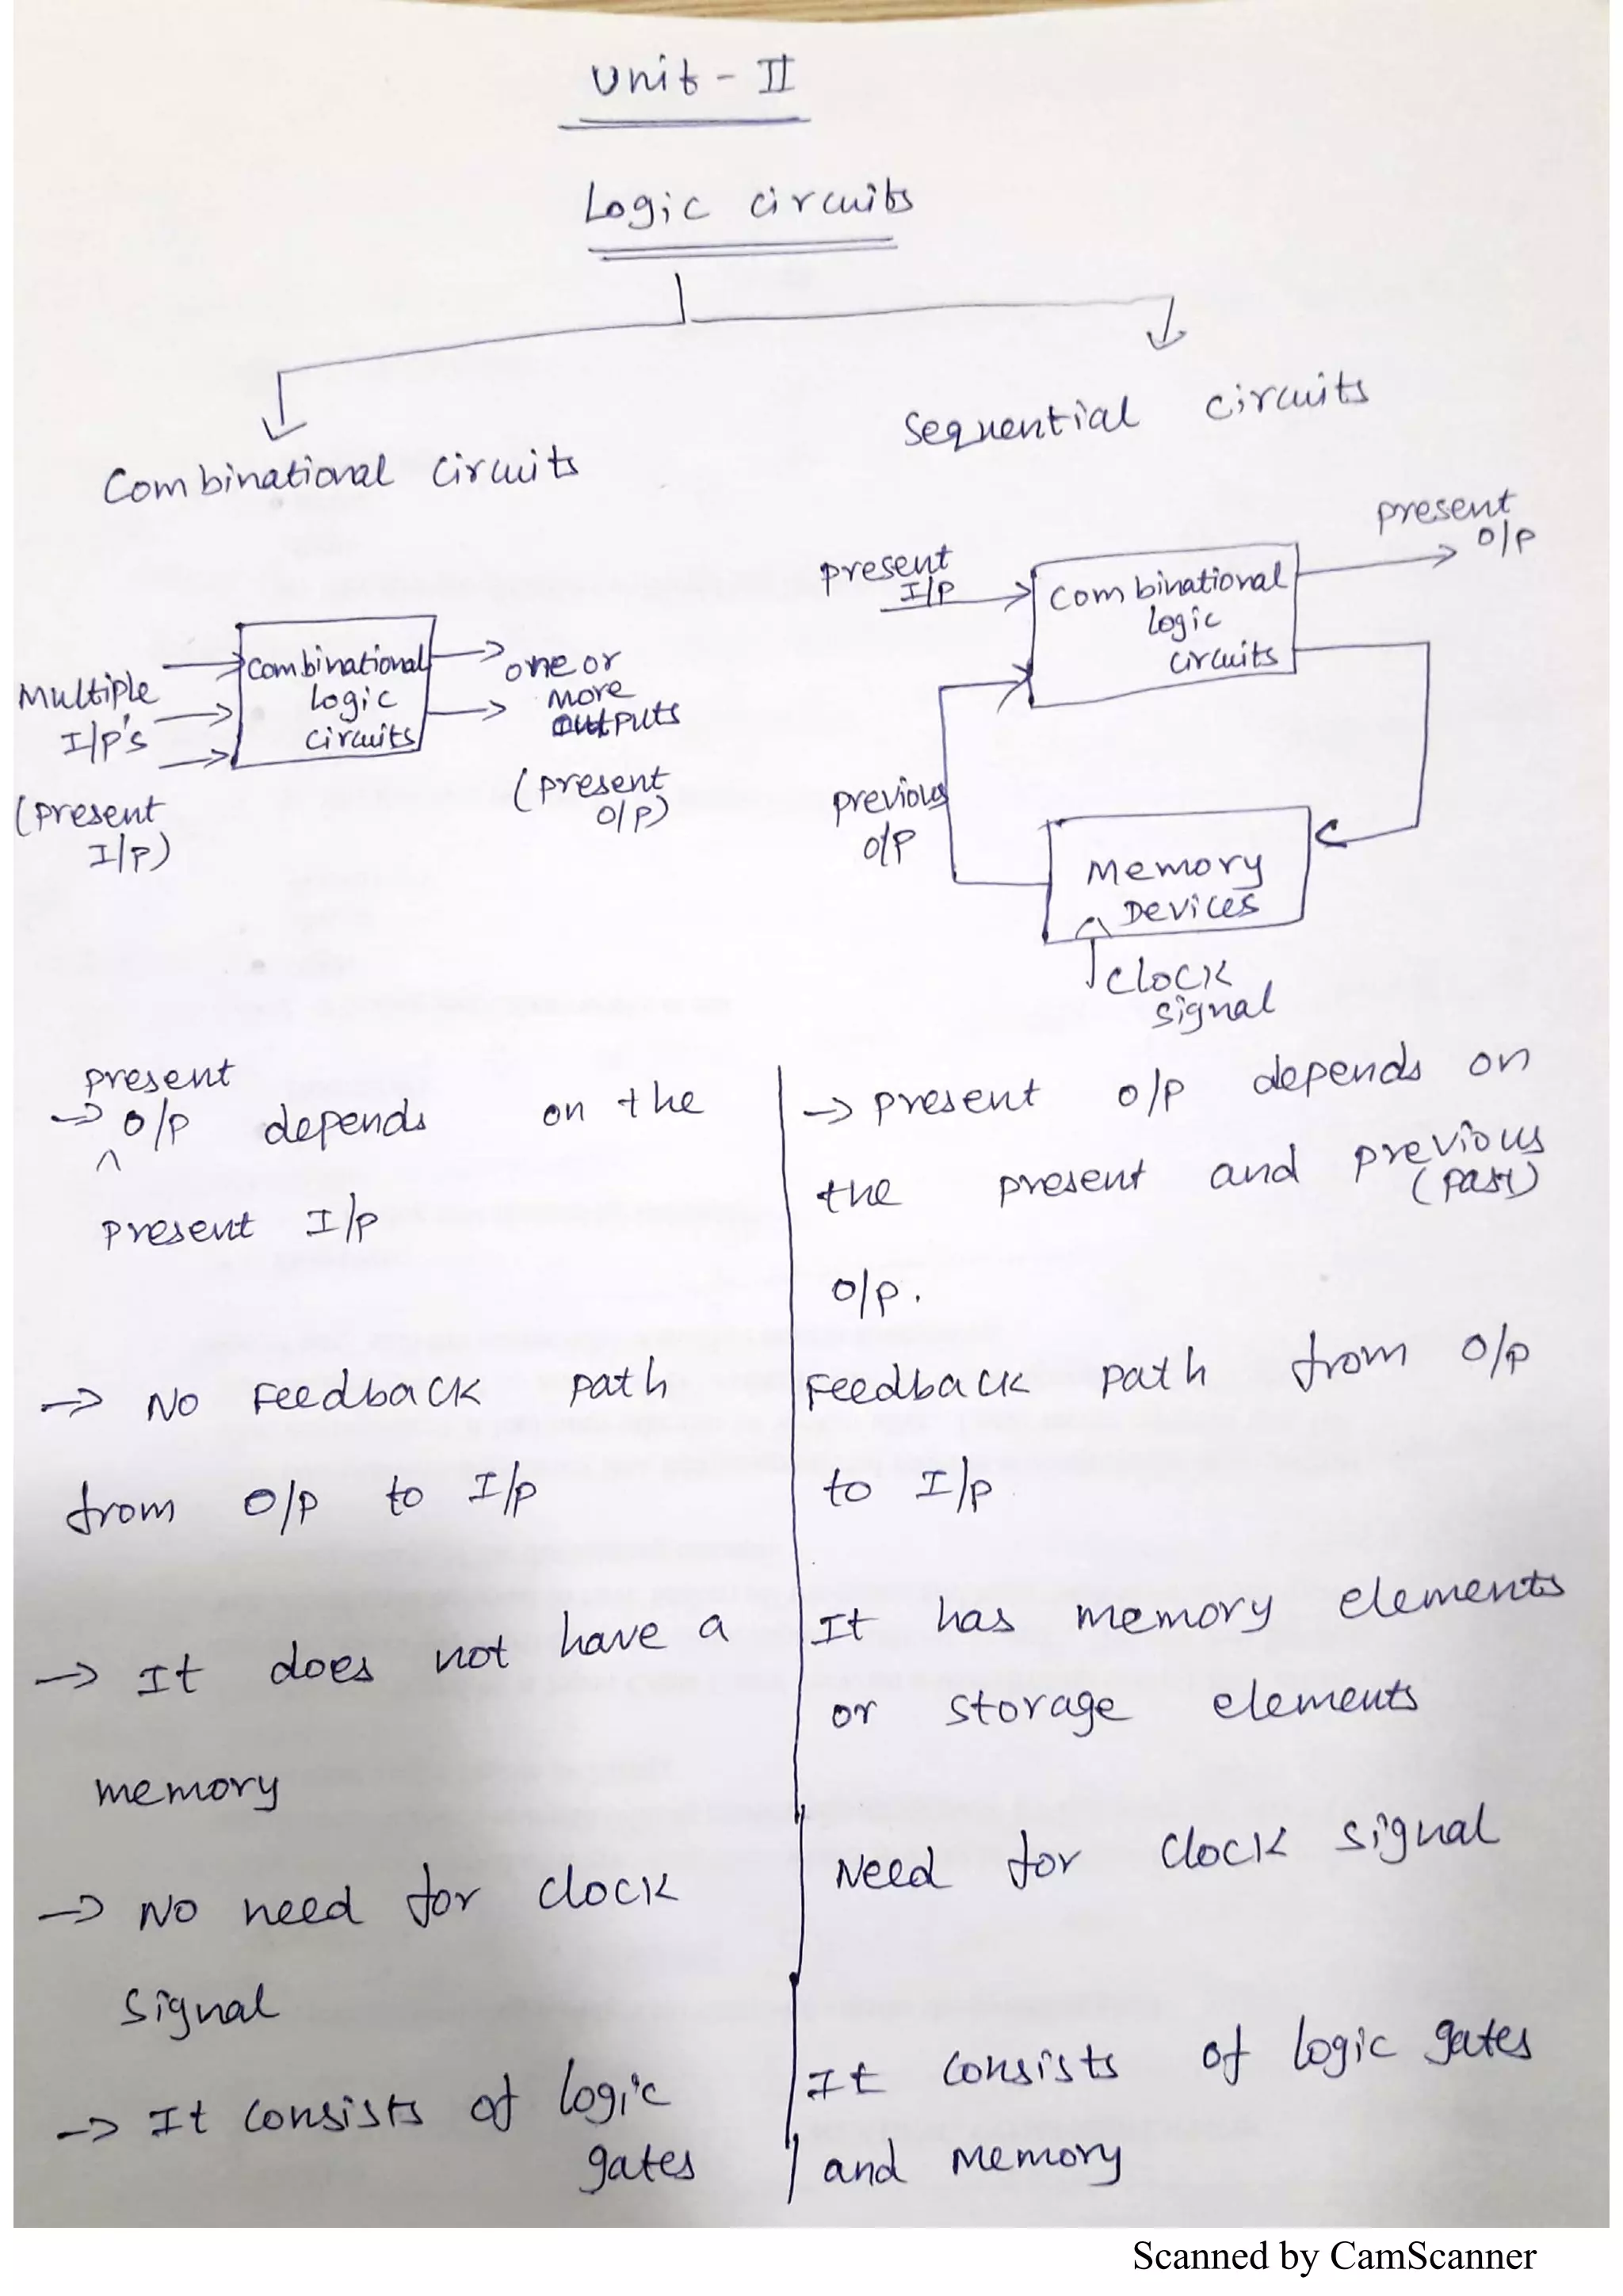 Unit - II
Logic circuits
Combinational circuits
Sequential circuits
Multiple
I/p's
(present
I/p)
Combinational
logic
circuits
one or
more
outputs
(present
O/p)
present
I/p
Combinational
logic
circuits
present
O/p
previous
O/p
Memory
Devices
clock
signal
present
→ O/p depends on the
present I/p
→ No Feedback path
from O/p to I/p
→ It does not have a
memory
→ No need for clock
signal
→ It consists of logic
gates
→ present O/p depends on
the present and previous
(past)
O/p.
Feedback path from O/p
to I/p
It has memory elements
or storage elements
Need for clock signal
It consists of logic gates
and Memory
Scanned by CamScanner